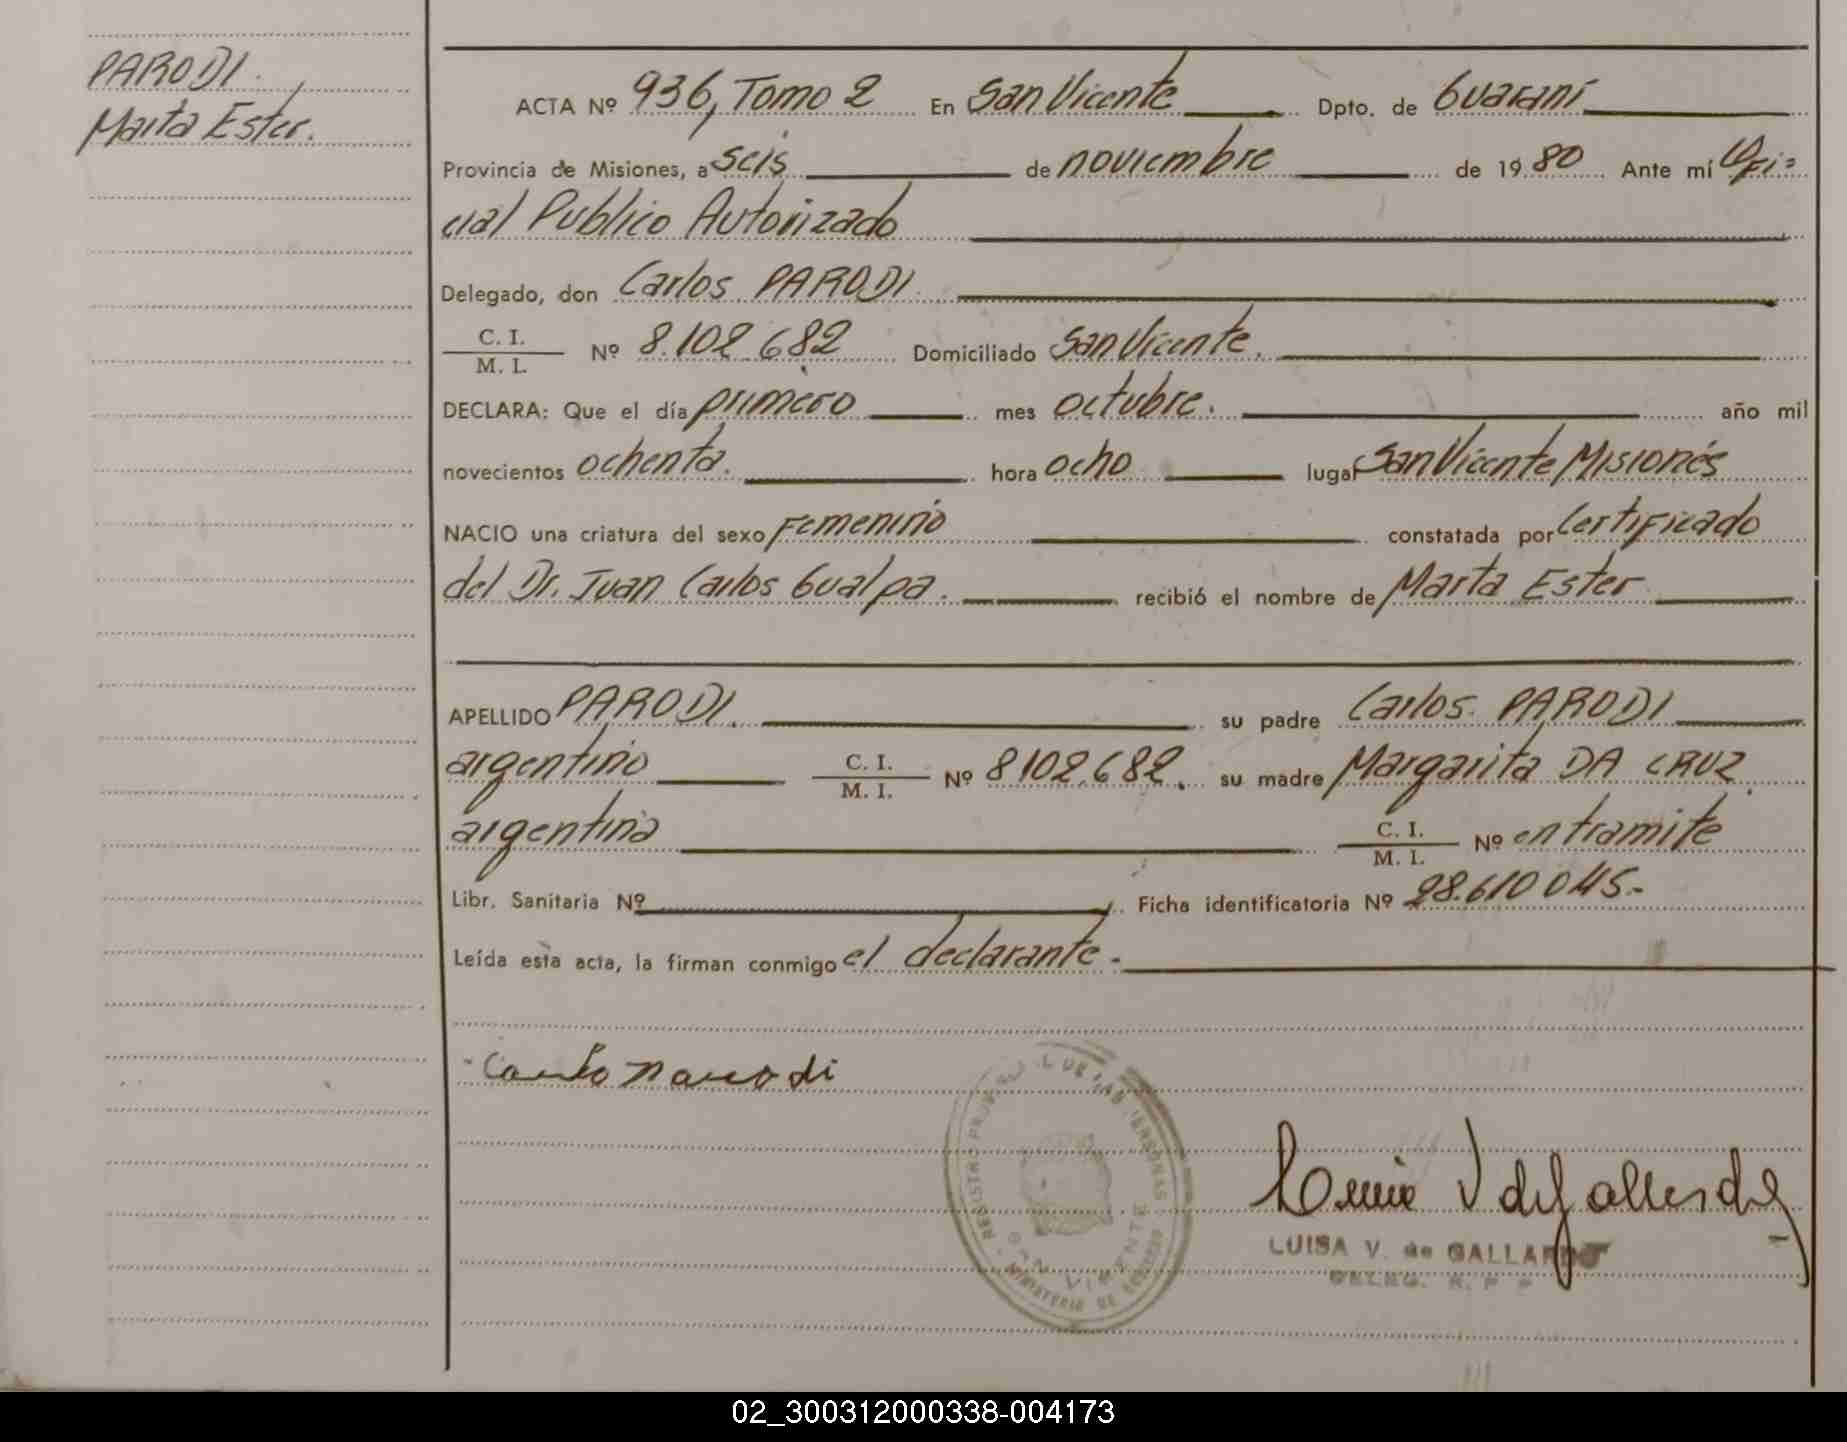 PARODI.
Marta Ester.
ACTA Nº 936, Tomo 2 En San Vicente Dpto. de Guaraní
Provincia de Misiones, a seis de noviembre de 1980 Ante mí Ofi=
cial Publico Autorizado
Delegado, don Carlos PARODI
C. I.
M. I. Nº 8.102.682 Domiciliado San Vicente.
DECLARA: Que el día primero mes octubre. año mil
novecientos ochenta. hora ocho lugar San Vicente Misiones
NACIO una criatura del sexo Femenino constatada por Certificado
del Dr. Juan Carlos Gualpa. recibió el nombre de Marta Ester
APELLIDO PARODI. su padre Carlos PARODI
argentino C. I.
M. I. Nº 8102.682. su madre Margarita DA CRUZ
argentina C. I.
M. I. Nº en tramite
Libr. Sanitaria Nº Ficha identificatoria Nº 28.610.045.-
Leída esta acta, la firman conmigo el declarante.-
Carlo Parodi
REGISTRO PROVINCIAL DE LAS PERSONAS
SAN VICENTE
MINISTERIO DE GOBIERNO
Luisa V de Gallardo
LUISA V. de GALLARDO
DELEG. R. P. P
02_300312000338-004173